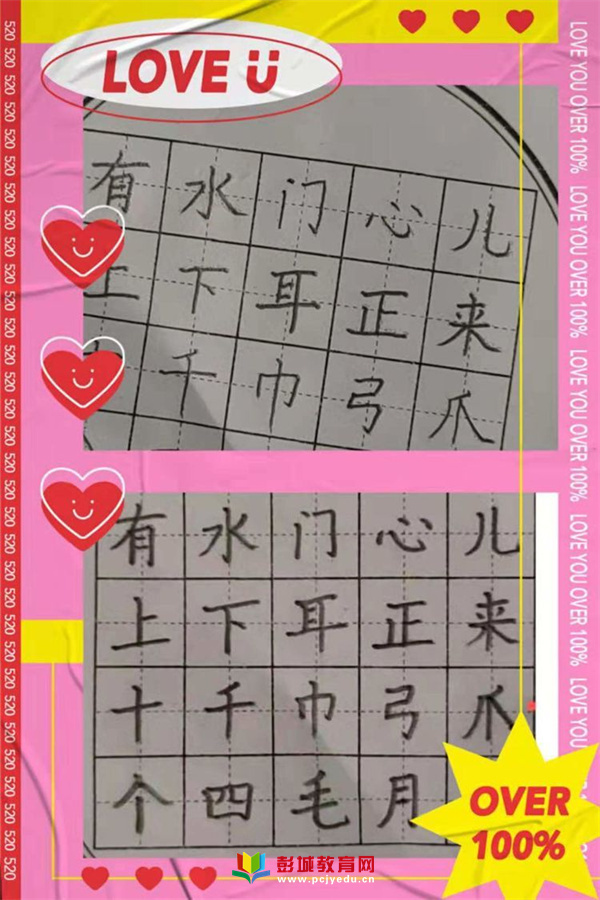 LOVE Ü
有水门心儿
上下耳正来
千巾弓爪
有水门心儿
上下耳正来
十千巾弓爪
个四毛月
OVER
100%
彭城教育网
www.pcjyedu.cn
520 520 520 520 520 520 520 520 520 520 520 520 520 520 520 520 520 520 520 520 520 520 520 520 520 520 520 520 520 520 520 520
LOVE YOU OVER 100% LOVE YOU OVER 100% LOVE YOU OVER 100% LOVE YOU OVER 100% LOVE YOU